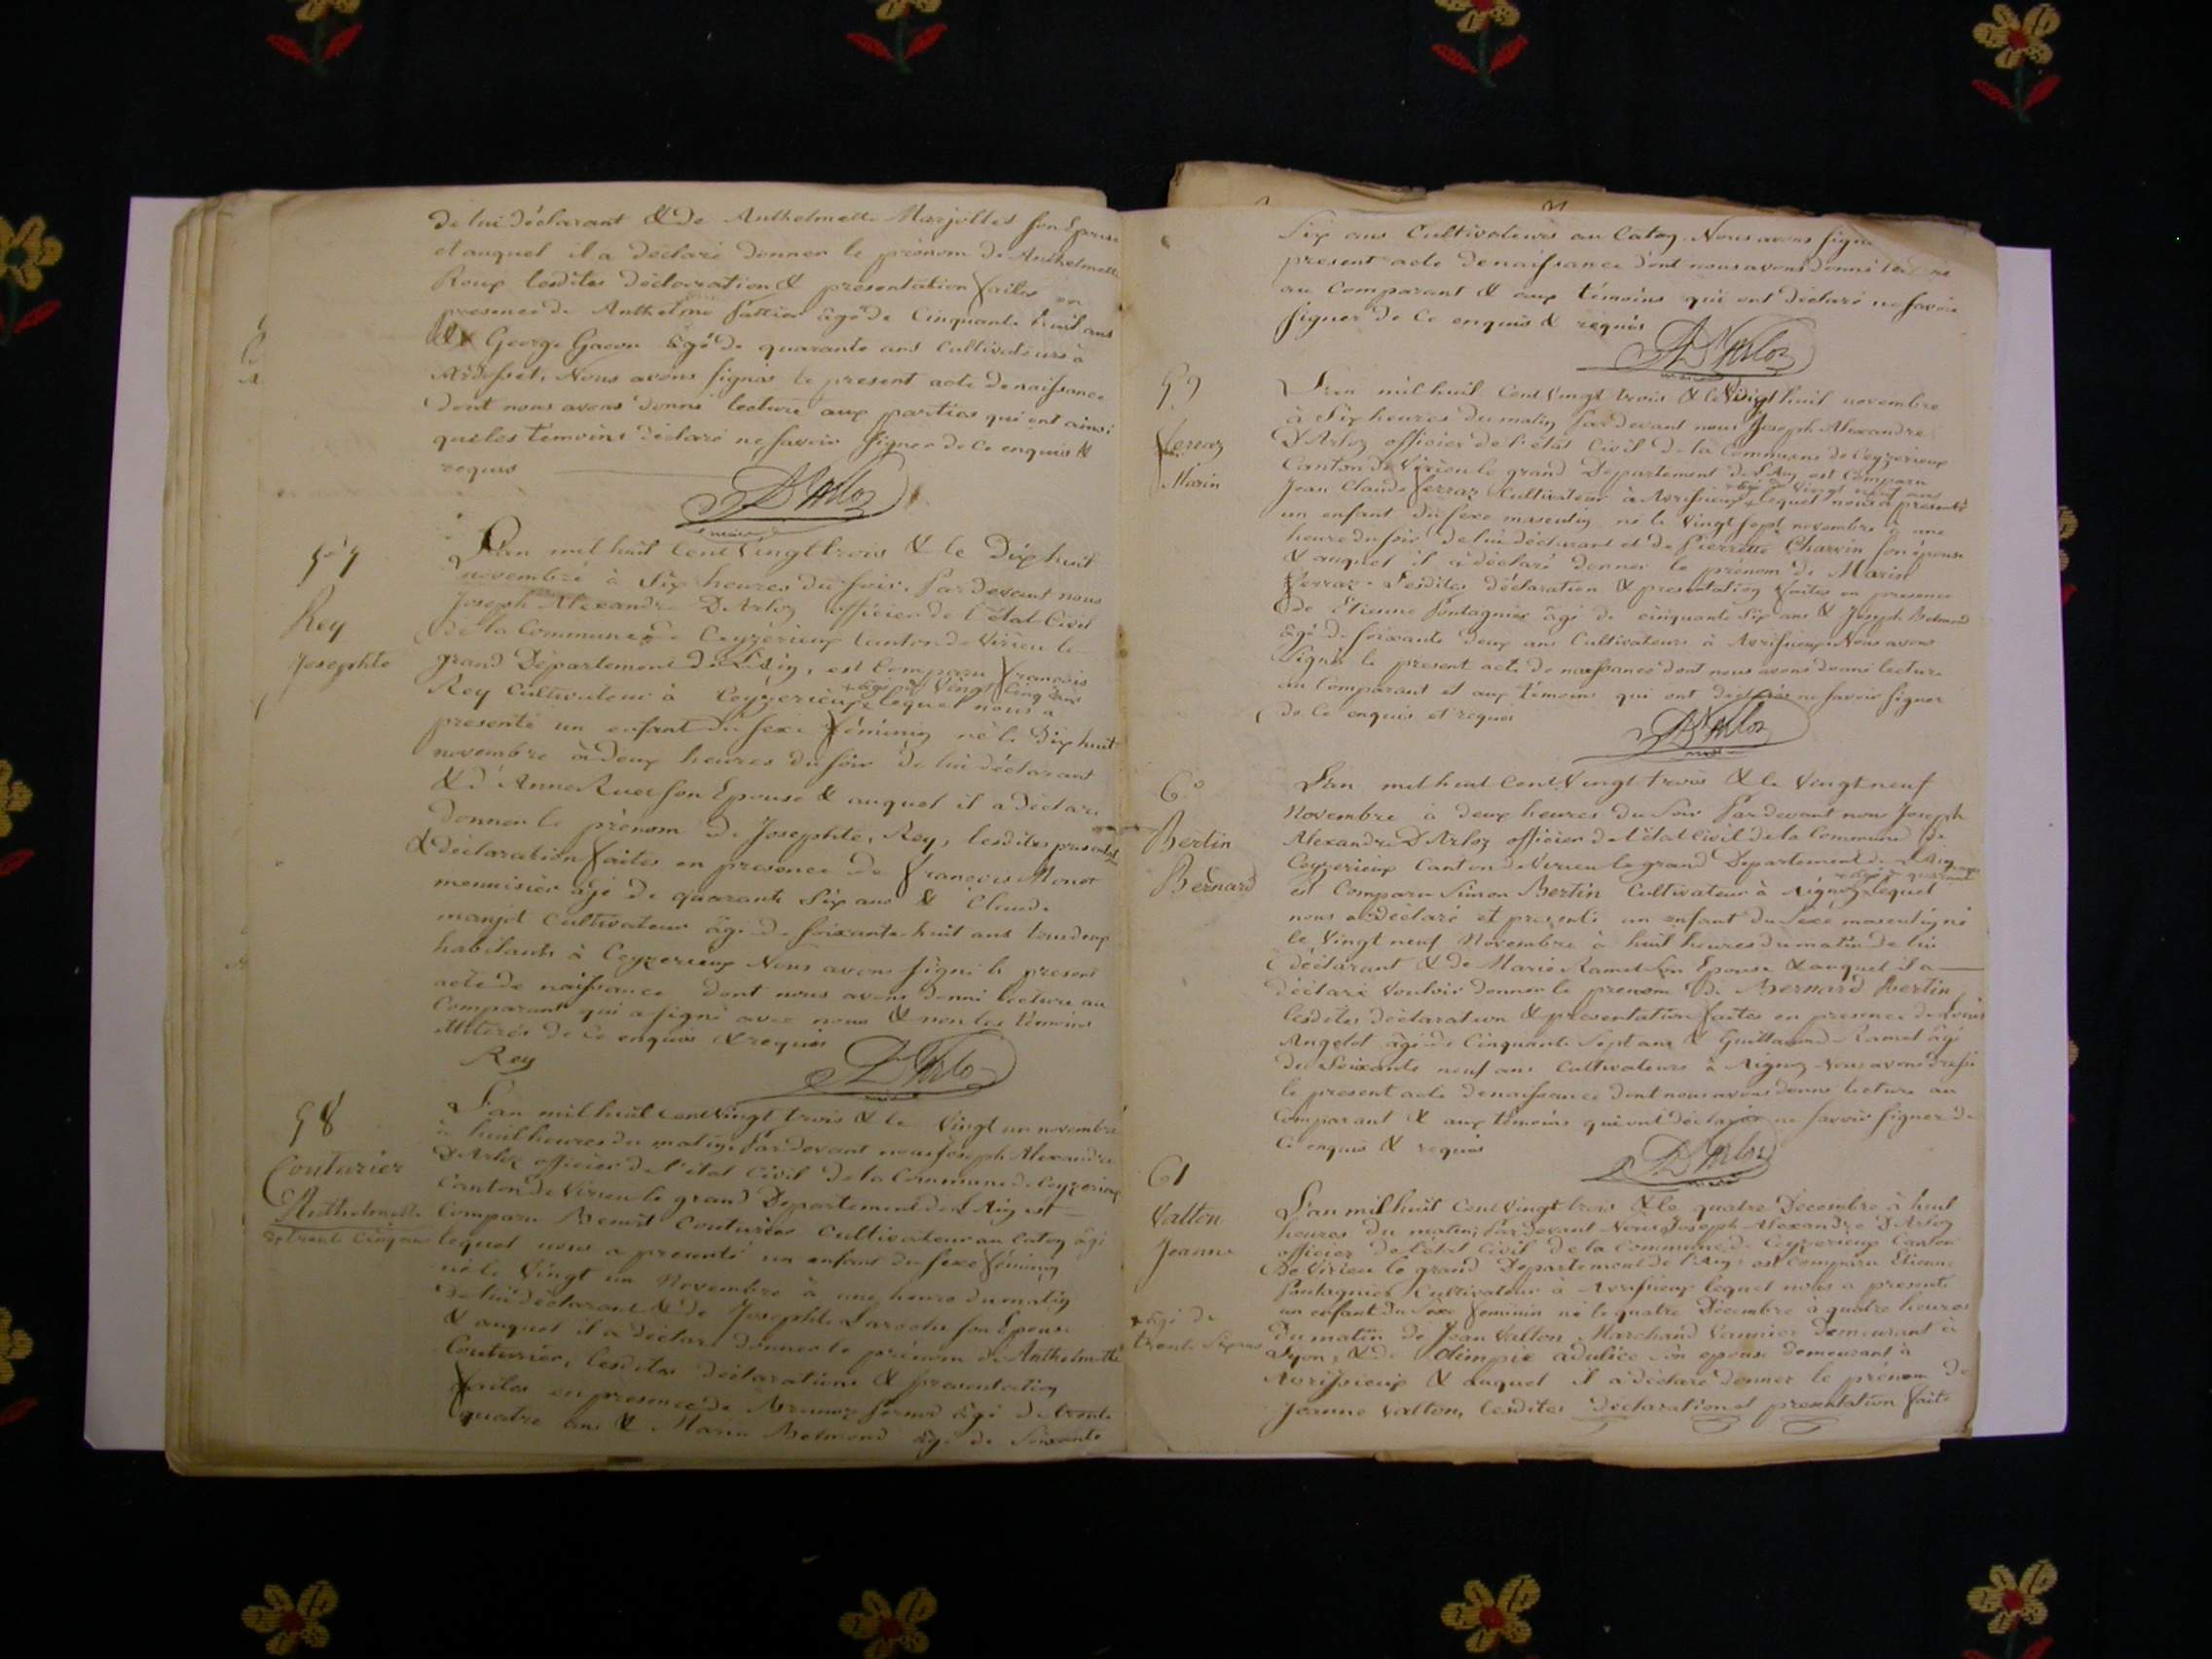 de lui déclarant & de Anthelmette Marjolles son Epouse
et auquel il a déclaré donner le prénom de Anthelmette
Roux lesdites déclaration & présentation faites en
presence de Anthelme âgé de Cinquante huit ans
& George âgé de quarante ans Cultivateurs à
Ardosset, Nous avons signés le present acte de naissance
dont nous avons donné lecture aux parties qui ont ainsi
que les témoins déclaré ne savoir signer de ce enquis &
requis
DArloz
maire
57
Rey
Josephte
L'an mil huit Cent Vingt trois & le Dix huit
novembre à Six heures du soir. Pardevant nous
Joseph Alexandre DArloz officier de l'état Civil
de la Commune de Ceyzerieux Canton de Virieu le
grand Département de L'Ain, est Comparu francois
Rey Cultivateur à Ceyzerieux + lequel nous a
+ âgé de Vingt Cinq ans
presenté un enfant du sexe féminin né le Dix huit
novembre à deux heures du soir de lui déclarant
& d'Anne son Epouse & auquel il a déclaré
donner le prénom de Josephte, Rey, lesdites presentation
& déclaration faites en presence de francois Monet
menuisier âgé de quarante Six ans & Claude
manjot Cultivateur âgé de soixante huit ans tous deux
habitants à Ceyzerieux Nous avons signé le present
acte de naissance dont nous avons donné lecture au
Comparant qui a signé avec nous & non les témoins
illitérés de ce enquis & requis
Rey
DArloz
maire
58
Couturier
Anthelmette
+ trente Cinq ans
L'an mil huit cent Vingt trois & le Vingt un novembre
à huit heures du matin, Pardevant nous Joseph Alexandre
DArloz officier de l'état Civil de la Commune de Ceyzerieux
Canton de Virieu le grand Departement de L'Ain est
Comparu Benoit Couturier Cultivateur au Caton âgé
lequel nous a presenté un enfant du sexe féminin
né le Vingt un Novembre à une heure du matin
de lui déclarant & de Josephte Laroche son Epouse
& auquel il a déclaré donner le prénom de Anthelmette
Couturier, lesdites déclarations & présentation
faites en presence de âgé de trente
quatre ans & Marin Belmond âgé de Soixante
Six ans Cultivateurs au Caton. Nous avons signé
present acte de naissance dont nous avons donné lecture
au Comparant & aux témoins qui ont déclaré ne savoir
signer de Ce enquis & requis
DArloz
maire
59
ferraz
Marin
L'an mil huit Cent Vingt trois & le Vingt huit novembre
à Six heures du matin Pardevant nous Joseph Alexandre
DArloz officier de l'état Civil de la Commune de Ceyzerieux
Canton de Virieu le grand Departement de L'Ain est Comparu
Jean Claude ferraz Cultivateur à Avrissieux + lequel nous a presenté
+ âgé de vingt neuf ans
un enfant du sexe masculin né le Vingt sept novembre à une
heure du soir de lui déclarant et de Pierrette Charvin son épouse
& auquel il a déclaré donner le prénom de Marin
ferraz. Lesdites déclaration & presentation faites en presence
de Etienne Pontagnier âgé de cinquante Six ans & Joseph Belmond
âgé de soixante deux ans Cultivateurs à Avrissieux Nous avons
signés le present acte de naissance dont nous avons donné lecture
au Comparant et aux témoins qui ont déclarés ne savoir signer
de Ce enquis et requis
DArloz
maire
60
Bertin
Bernard
L'an mil huit Cent Vingt trois & le Vingt neuf
Novembre à deux heures du soir Pardevant nous Joseph
Alexandre DArloz officier de l'état Civil de la Commune de
Ceyzerieux Canton de Virieu le grand Departement de L'Ain
est Comparu Simon Bertin Cultivateur à Aignoz + lequel
+ âgé de quarante
nous a déclaré et presenté un enfant du sexe masculin né
le Vingt neuf Novembre à huit heures du matin de lui
déclarant & de Marie Ramel son Epouse & auquel il a
déclaré Vouloir donner le prenom de Bernard Bertin
lesdites déclaration & presentation faites en presence de Louis
Angelot âgé de Cinquante Sept ans & Guillaume Ramel âgé
de Soixante neuf ans Cultivateurs à Aignoz Nous avons dressé
le present acte de naissance dont nous avons donné lecture au
Comparant & aux témoins qui ont déclarés ne savoir signer de
Ce enquis & requis
DArloz
maire
61
Valton
Jeanne
+ âgé de
trente Six ans
L'an mil huit Cent Vingt trois & le quatre Decembre à huit
heures du matin, Pardevant Nous Joseph Alexandre DArloz
officier de l'état Civil de la commune de Ceyzerieux Canton
de Virieu le grand Departement de l'Ain est Comparu Etienne
Pontagnier Cultivateur à Avrissieux lequel nous a presenté
un enfant du sexe feminin né le quatre Décembre à quatre heures
du matin de Jean Valton Marchand Vannier demeurant à
Lyon, & de Olimpie adulice son epouse demeurant à
Avrissieux & auquel il a déclaré donner le prénom de
Jeanne Valton, lesdites déclaration et presentation faite